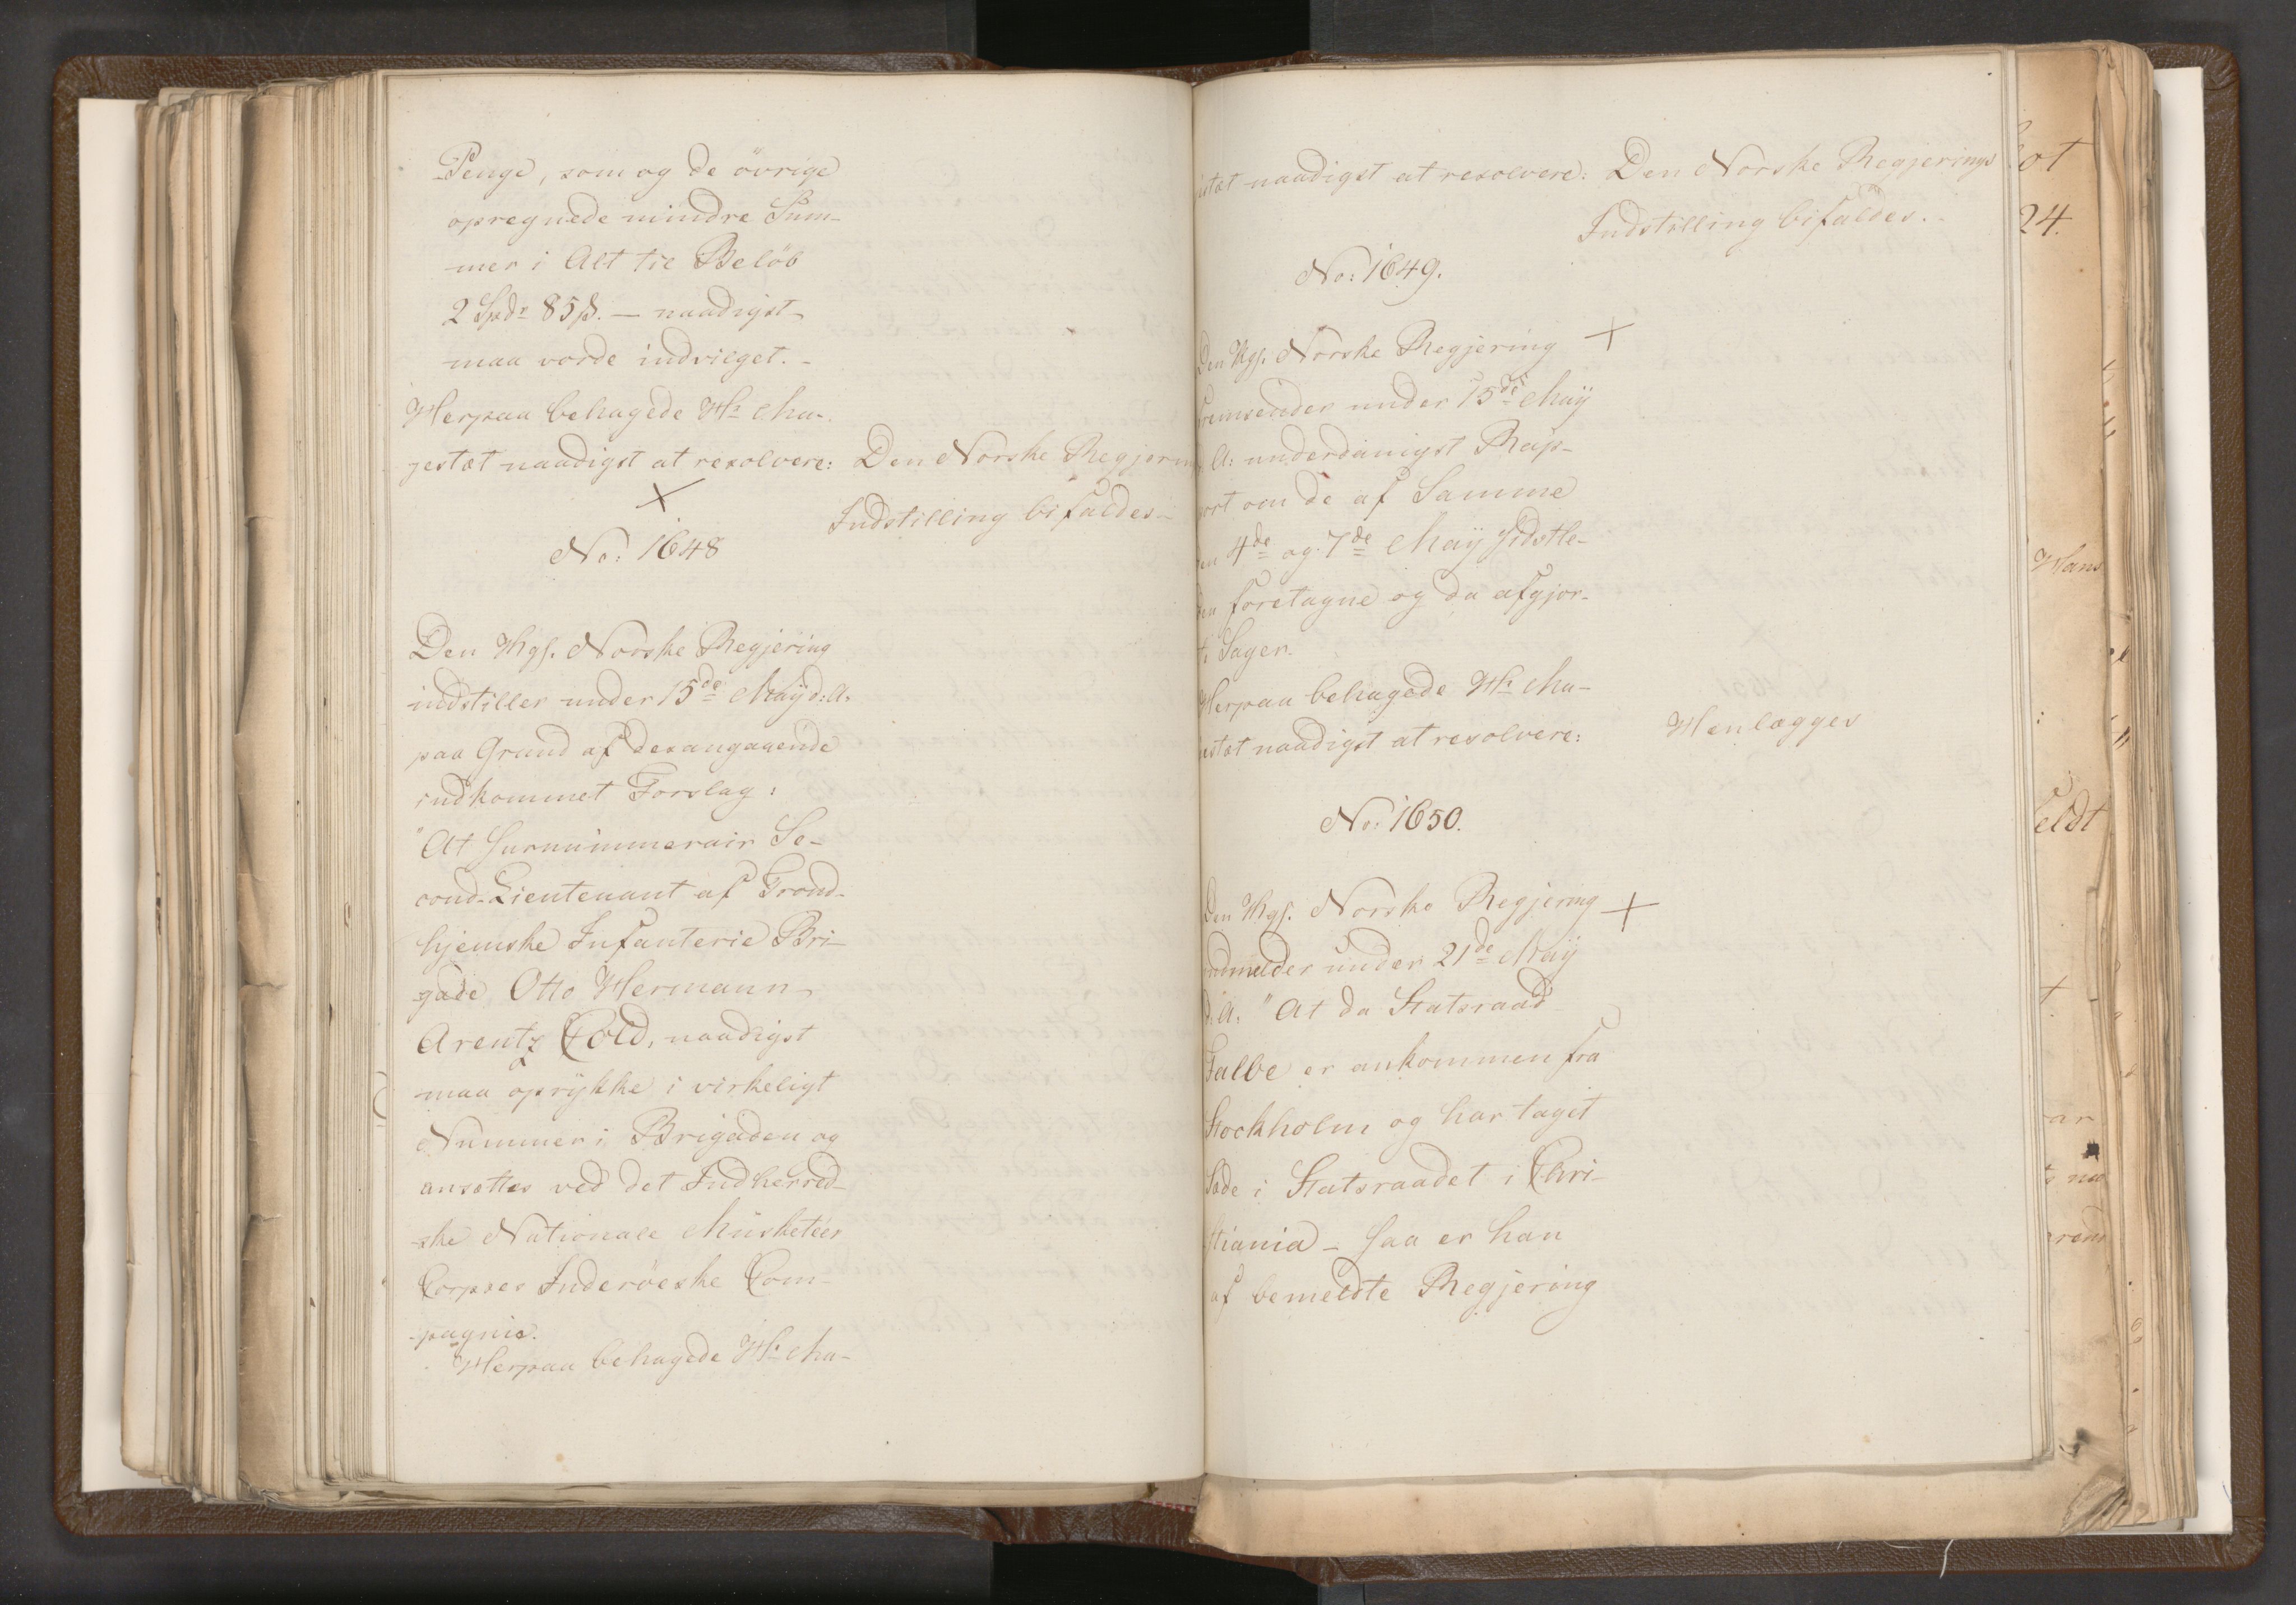 Penge, som og de övrige
opregnede mindre Sum-
mer i Alt til Belöb
2 Spdr 85 ß. — naadigst
maa vorde indvilget. -
Herpaa behagede Hs Ma-
jestæt naadigst at resolvere: Den Norske Regjerings
Indstilling bifaldes -
No: 1648
Den Kgl. Norske Regjering
indstiller under 15de Maÿ d: A.
paa Grund af desangaaende
indkommet Forslag:
"At Surnummerair Se-
cond-Lieutenant af Trond-
hjemske Infanterie Bri-
gade Otto Hermann
Arentz Cold, naadigst
maa oprÿkke i virkeligt
Nummer i Brigaden og
ansættes ved det Indherred-
ske Nationale Musketeer
Corpses Inderöeske Com-
pagnie.
Herpaa behagede Hs Ma-
jestæt naadigst at resolvere: Den Norske Regjerings
Indstilling bifaldes.
No: 1649.
Den Kgl. Norske Regjering
fremsender under 15de Maÿ
d. A: underdanigst Rap-
port om de af Samme
den 4de og 7de Maÿ sidstle-
den foretagne og da afgjor-
te Sager.
Herpaa behagede Hs Ma-
jestæt naadigst at resolvere: Henlægges
No: 1650.
Den Kgl. Norske Regjering
indmelder under 21de Maÿ
d. A. "At da Statsraad
Falbe er ankommen fra
Stockholm og har taget
Sæde i Statsraadet i Chri-
stiania - saa er han
af bemeldte Regjering
ot
24.
Hans
feldt